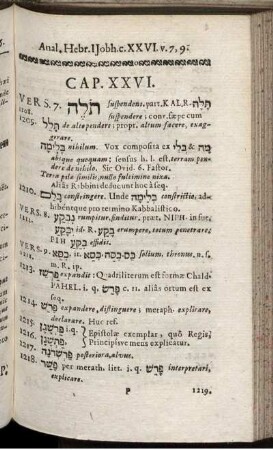 Anal. Hebr. IJobh. c. XXVI. v. 7, 9.
CAP. XXVI.
VERS. 7. תֹּלֶה suspendens, part. KAL, R. תָּלָה
suspendere: conv. sæpe cum
1205. תָּלַל de alto pendere: propr. altum facere, exag-
gerare.
בְּלִימָה nihilum. Vox composita ex בְּלִי & מָה
ubique quoquam: sensus h. l. est. terram pende-
re de nihilo. Sic Ovid. 6. Fastor.
Terra pilæ similis, nullo fulcimine nixa.
Alias Rabbini deducunt hoc à seq.
1210. בָּלַם constringere. Unde בְּלִימָה constrictio, ad-
hibéntque pro nomino Kabbalistico.
VERS. 8. נִבְקַע rumpitur, finditur, præt. NIPH. in fine,
1211. R. בָּקַע erumpere, totum penetrare,
PIH
VERS. 9. כִּסֵּה
solium, thronus, n. s.
m. R. 1p.
expandit: Quadriliterum est formæ Chald.
PAHEL. i. q. פָּרַשׂ c. II. aliàs ortum est ex
seq.
1214. פָּרַשׂ expandere, distinguere; metaph. explicare,
declarare. Huc ref.
Epistolæ exemplar, quô Regis,
Principisve mens explicatur.
posteriora, alvus.
1218. פָּשַׁר per metath. litt. i. q. פָּרַשׁ interpretari,
explicare.
P 1219.